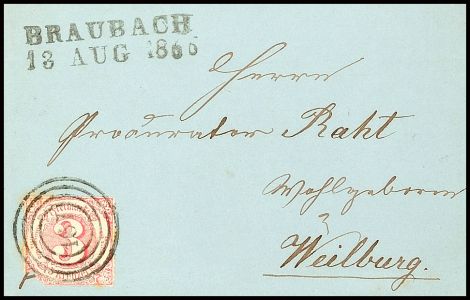 BRAUBACH
13 AUG 1866
Herrn
Procurator Raht
Wohlgeboren
Weilburg.
3